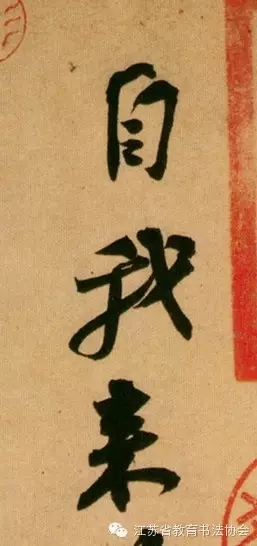 自我来
江苏省教育书法协会